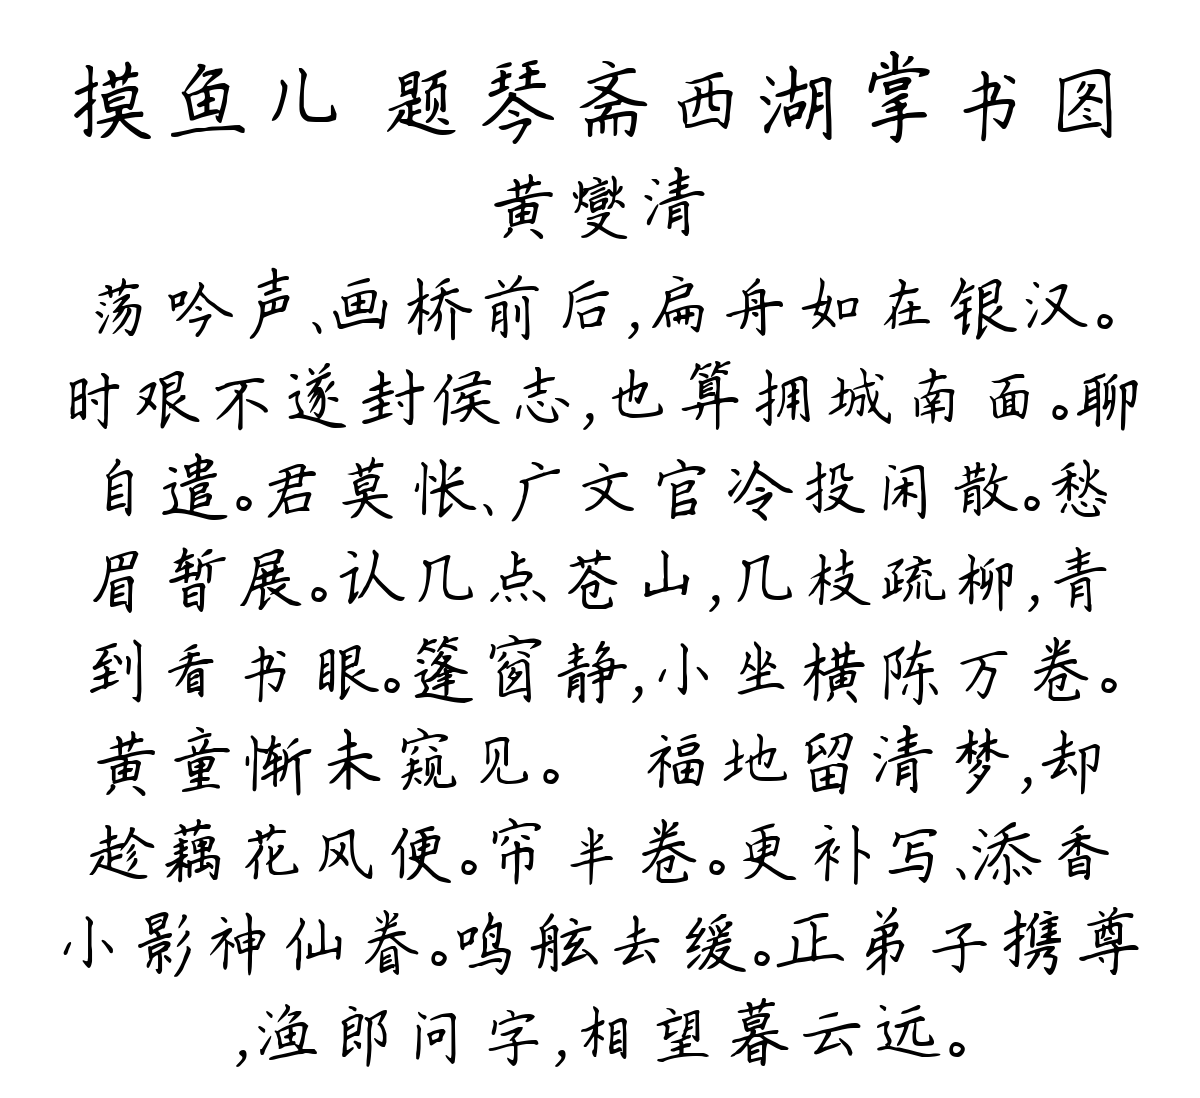 摸鱼儿 题琴斋西湖掌书图
黄燮清
荡吟声、画桥前后,扁舟如在银汉。
时艰不遂封侯志,也算拥城南面。聊
自遣。君莫怅、广文官冷投闲散。愁
眉暂展。认几点苍山,几枝疏柳,青
到看书眼。篷窗静,小坐横陈万卷。
黄童惭未窥见。 福地留清梦,却
趁藕花风便。帘半卷。更补写、添香
小影神仙眷。鸣舷去缓。正弟子携尊
,渔郎问字,相望暮云远。